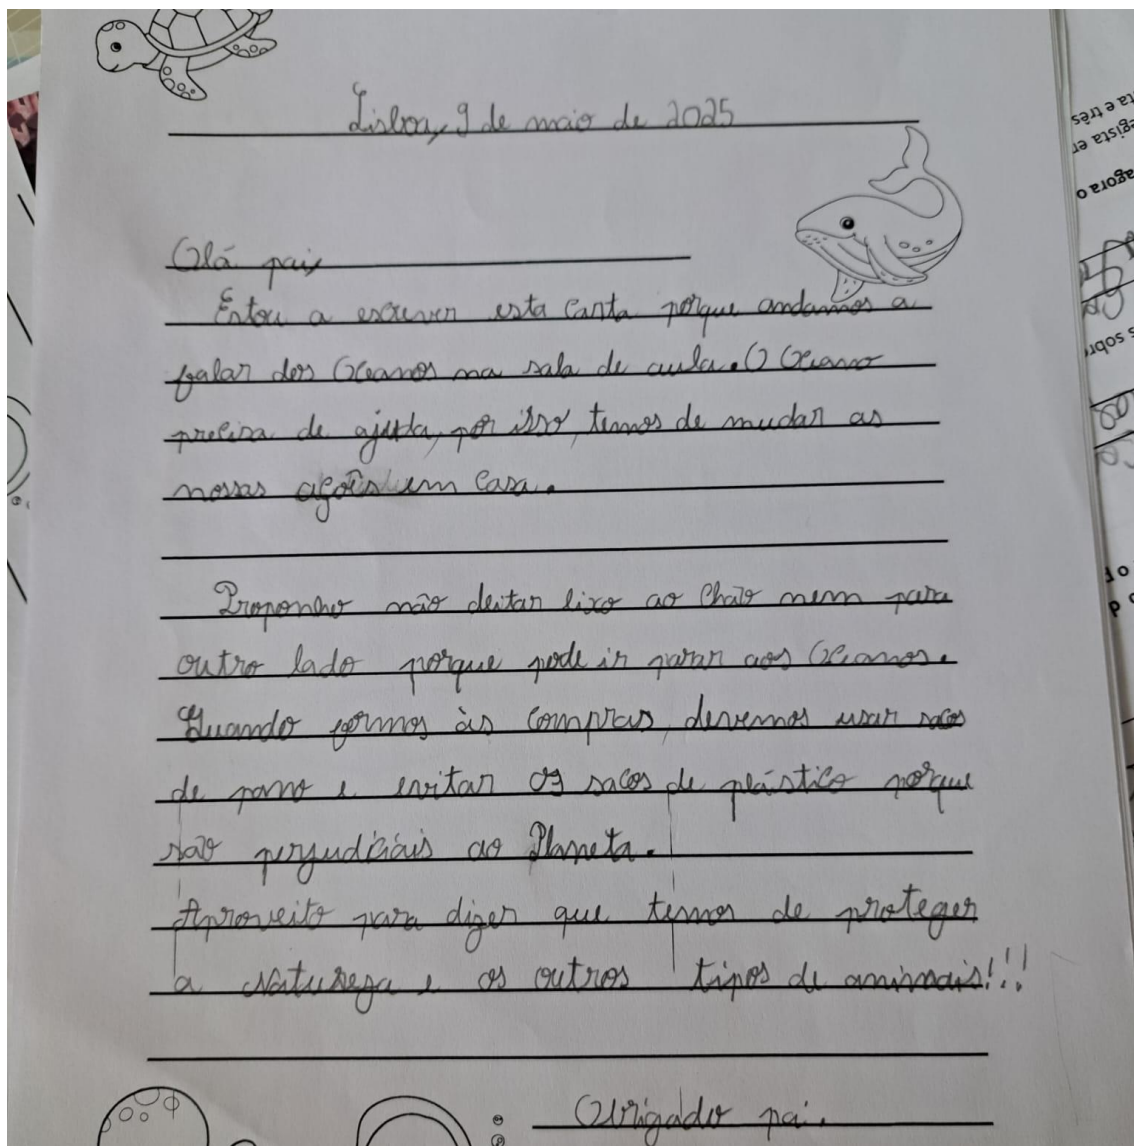 Lisboa, 9 de maio de 2025
Olá pai,
Estou a escrever esta carta porque andamos a
falar dos Oceanos na sala de aula. O Oceano
precisa de ajuda, por isso, temos de mudar as
nossas ações em casa.
Proponho não deitar lixo ao chão nem para
outro lado porque pode ir parar aos Oceanos.
Quando formos às compras, devemos usar sacos
de pano e evitar os sacos de plástico porque
são perjudiciáis ao Planeta.
Aproveito para dizer que temos de proteger
a Natureza e os outros tipos de animais!!!
Obrigado pai.
ta e três
egista er
agora o
s sobre